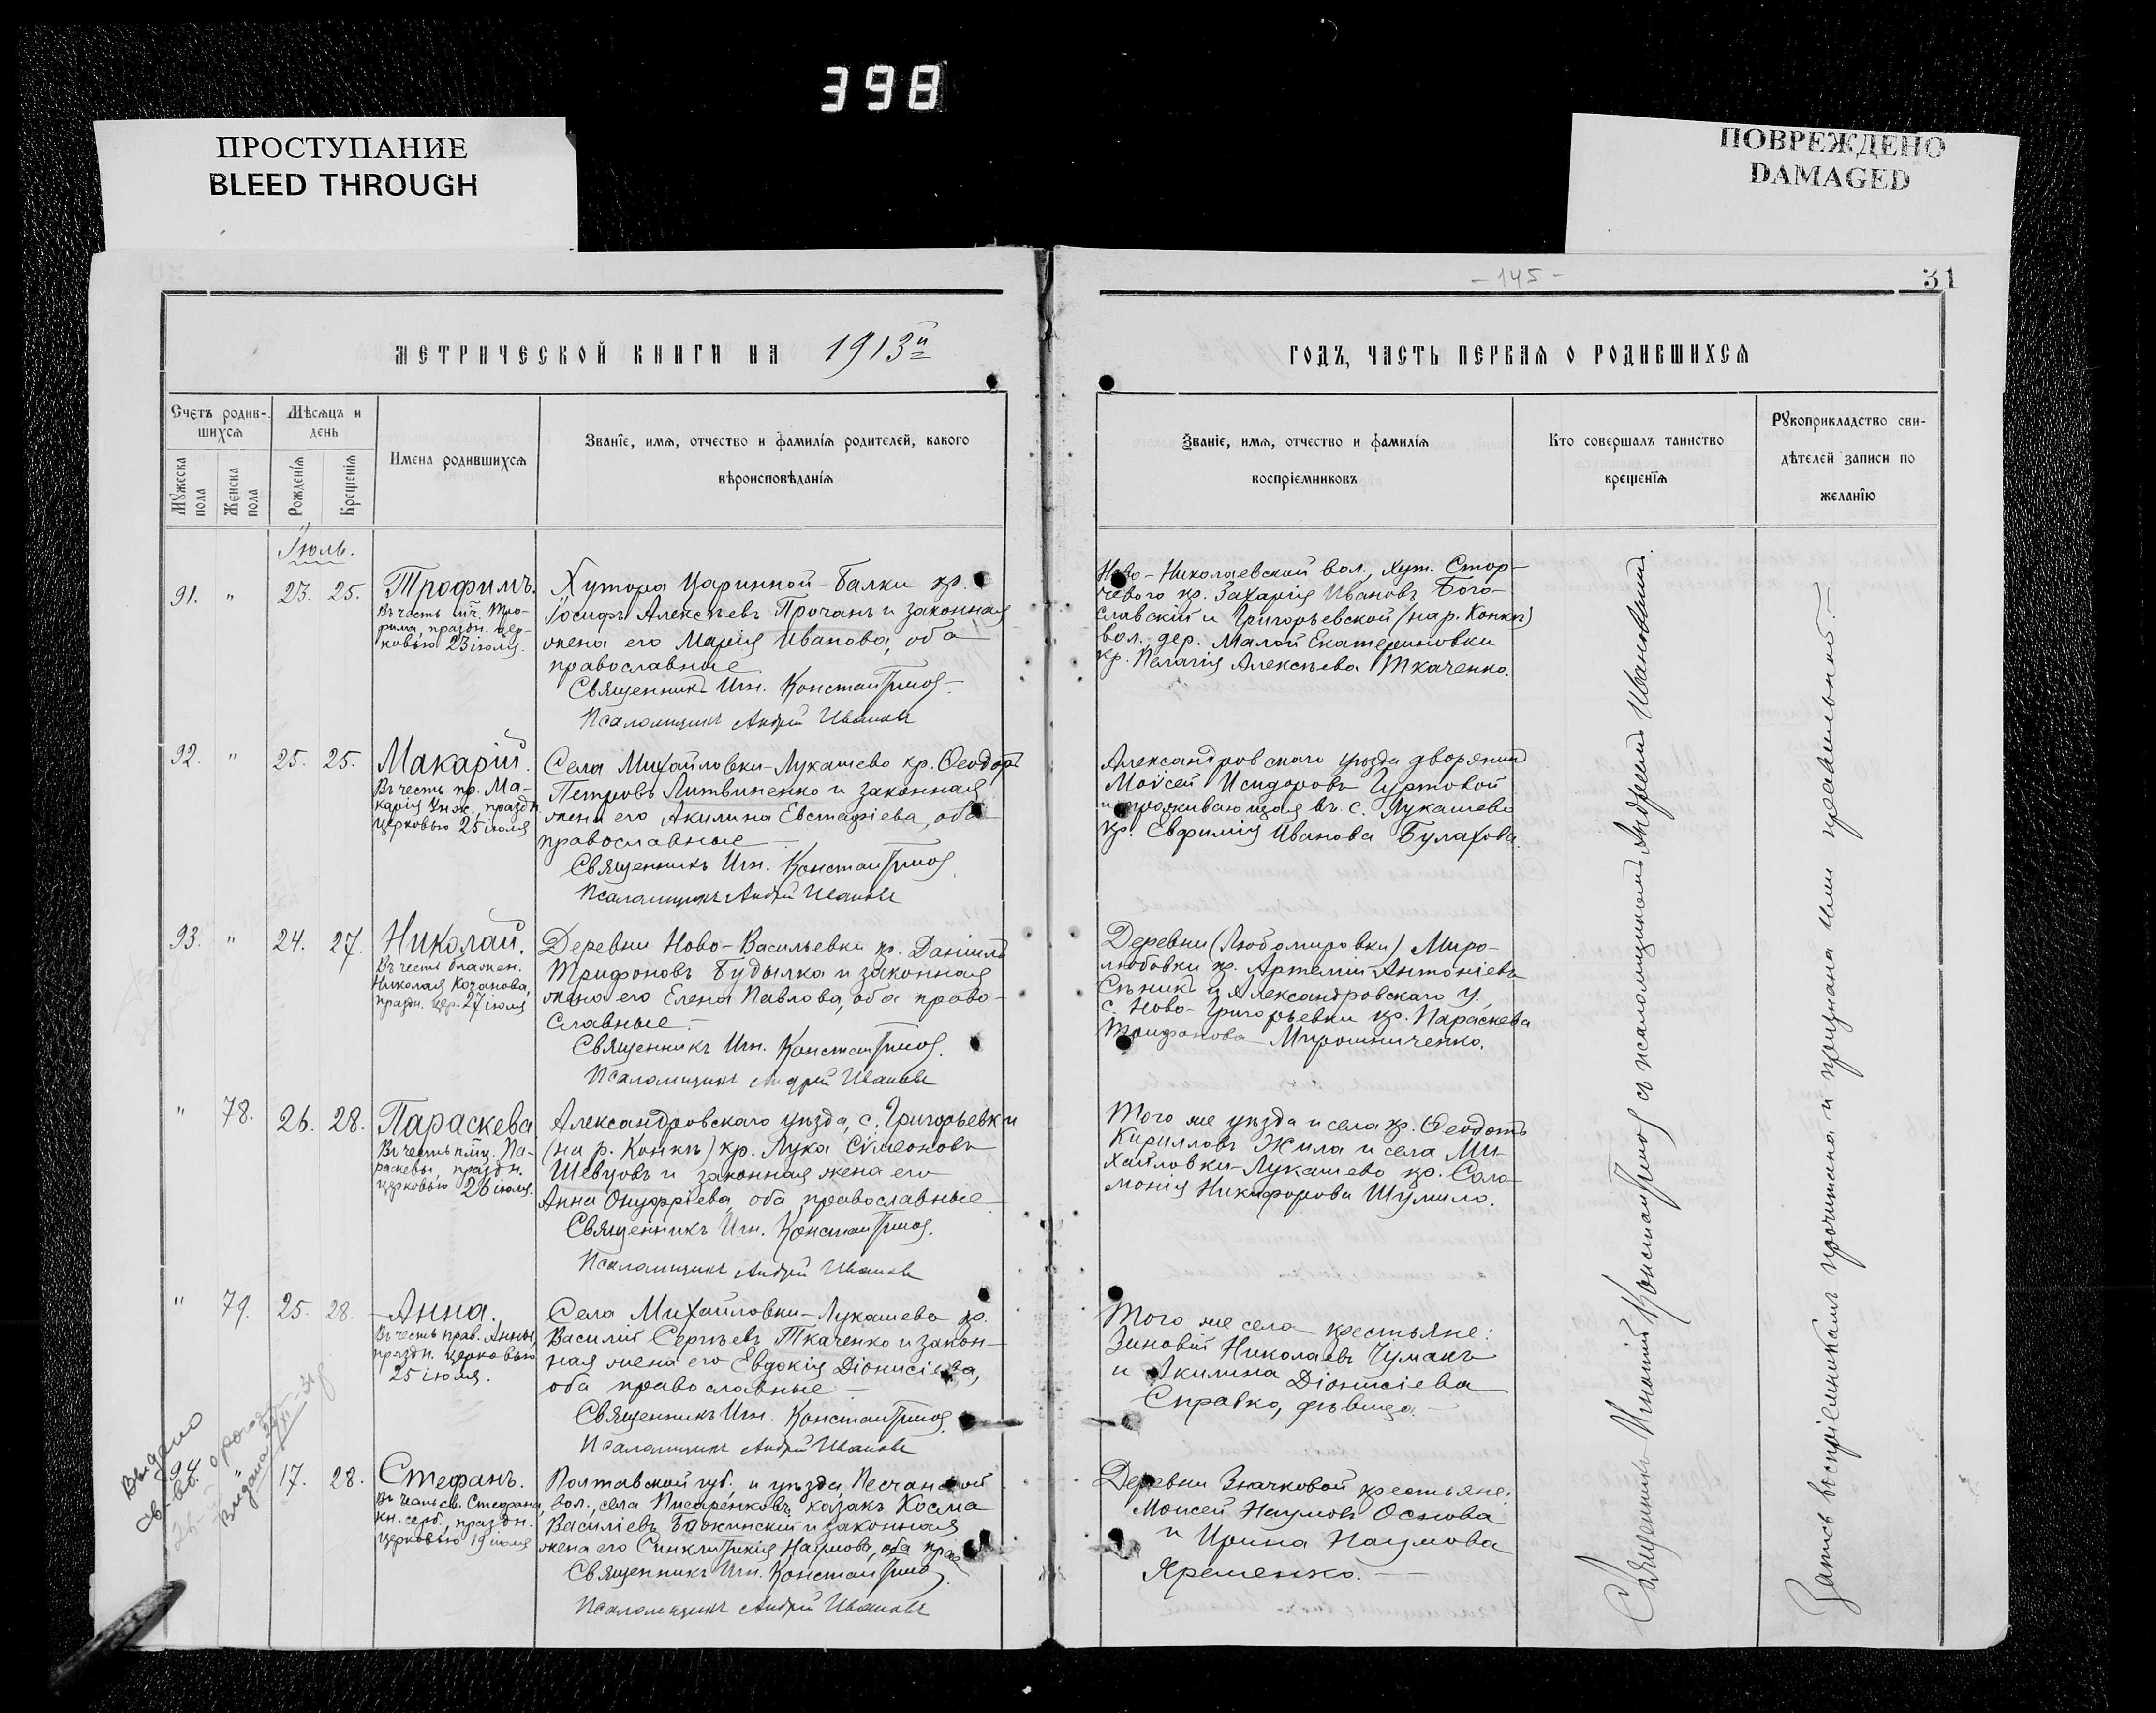 398
ПРОСТУПАНИЕ
BLEED THROUGH
ПОВРЕЖДЕНО
DAMAGED
- 145 -
31
МЕТРИЧЕСКОЙ КНИГИ НА 1913й
ГОДЪ, ЧАСТЬ ПЕРВАЯ О РОДИВШИХСЯ
Счетъ родив-
шихся
Мужеска пола
Женска пола
Мѣсяцъ и
день
Рожденія
Крещенія
Имена родившихся
Званіе, имя, отчество и фамилія родителей, какого
вѣроисповѣданія
Званіе, имя, отчество и фамилія
воспріемниковъ
Кто совершалъ таинство
крещенія
Рукоприкладство сви-
дѣтелей записи по
желанію
Іюль.
91. " 23. 25. Трофимъ.
Въ честь мч. Тро-
фима, праздн. цер-
ковью 23 іюля.
Хутора Царинной-Балки кр.
Іосифъ Алексѣевъ Прочанъ и законная
жена его Марія Иванова, оба
православные
Священникъ Игн.
Псаломщикъ Андрей Ивановъ
Ново-Николаевской вол., хут. Стор-
чевого кр. Захарія Ивановъ Бого-
славскій и Григорьевской (на р. Конкѣ)
вол., дер. Малой Екатериновки
кр. Пелагія Алексѣева Ткаченко.
92. " 25. 25. Макарій.
Въ честь пр. Ма-
карія Унж., праздн.
церковью 25 іюля
Села Михайловки-Лукашево кр. Ѳеодоръ
Петровъ Литвиненко и законная
жена его Акилина Евстафіева, оба
православные
Священникъ Игн.
Псаломщикъ Андрей Ивановъ
Александровскаго уѣзда дворянинъ
Моѵсей Исидоровъ Гуртовой
и проживающая въ с. Лукашево
кр. Евфимія Иванова Булахова.
93. " 24. 27. Николай.
Въ честь блажен.
Николая Кочанова,
праздн. цер. 27 іюля
Деревни Ново-Васильевки кр. Даніилъ
Трифоновъ Будылка и законная
жена его Елена Павлова, оба право-
славные.
Священникъ Игн.
Псаломщикъ Андрей Ивановъ
Деревни (Любомировки) Миро-
любовки кр. Артемій Антоніевъ
и Александровскаго у.
с. Ново-Григорьевки кр. Параскева
Трифонова Мирошниченко.
" 78. 26. 28. Параскева
Въ честь пмц. Па-
раскевы, праздн.
церковью 26 іюля.
Александровскаго уѣзда, с. Григорьевки
(на р. Конкѣ) кр. Лука Сѵмеоновъ
Шевцовъ и законная жена его
Анна Онуфріева, оба православные
Священникъ Игн.
Псаломщикъ Андрей Ивановъ
Того же уѣзда и села кр. Ѳеодотъ
Кирилловъ Жила и села Ми-
хайловки-Лукашево кр. Соло-
монія Никифорова Шумило.
" 79. 25. 28. Анна.
Въ честь прав. Анны,
праздн. церковью
25 іюля.
Села Михайловки-Лукашево кр.
Василій Сергѣевъ Ткаченко и закон-
ная жена его Евдокія Діонисіева,
оба православные
Священникъ Игн.
Псаломщикъ Андрей Ивановъ
Того же села крестьяне:
Зиновій Николаевъ Чумакъ
и Акилина Діонисіева
Справко, дѣвица.
Выдано
св-во.
Видана
94. " 17. 28. Стефанъ.
Въ честь св. Стефана,
кн. серб., праздн.
церковью 19 іюля
Полтавской губ. и уѣзда, Песчанской
вол., села Писаренковъ, казакъ Косма
Василіевъ Божинскій и законная
жена его Синклитикія Наумова, оба прав.
Священникъ Игн.
Псаломщикъ Андрей Ивановъ
Деревни Значковой крестьяне:
Моисей Наумовъ Основа
и Ирина Наумова
Яременко.
Священникъ Игнатій съ псаломщикомъ Андреемъ Ивановымъ.
Запись воспріемникамъ прочитана и признана ими правильной.